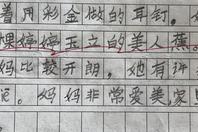 着用彩金做的耳钉。
棵婷婷玉立的美人蕉。
妈比较开朗，她有
说。妈妈非常爱美，家里